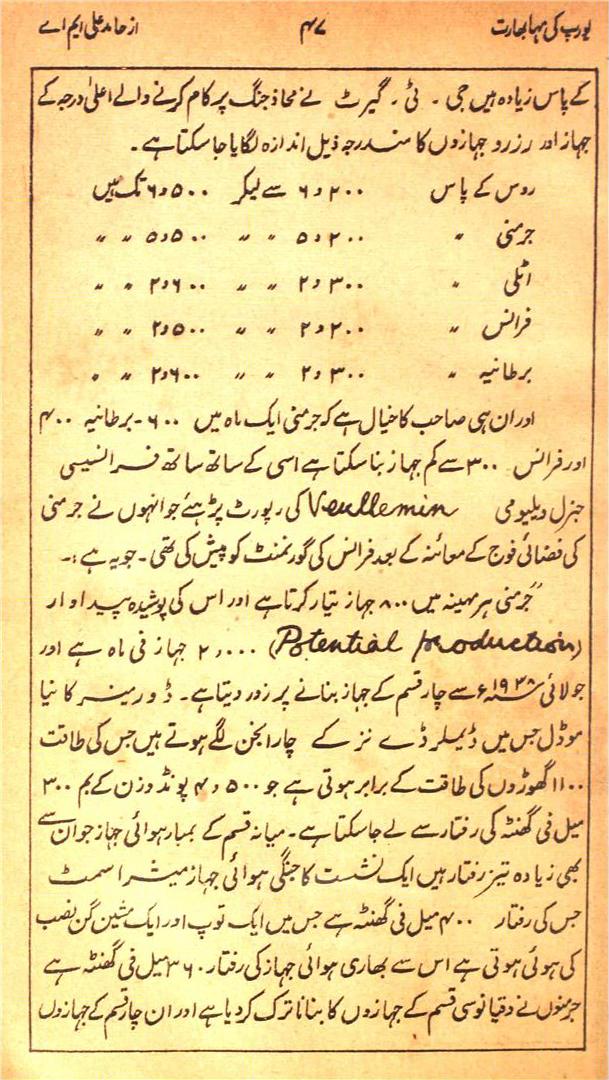 یورپ کی مہابھارت ۴۷ از حامد علی ایم اے
کے پاس زیادہ ہیں جی ۔ ٹی ۔ گیرٹ نے محاذ جنگ پر کام کرنے والے اعلیٰ درجہ کے
جہاز اور رزرو جہازوں کا مندرجہ ذیل اندازہ لگایا جا سکتا ہے ۔
روس کے پاس ۶٫۲۰۰ سے لیکر ۶٫۵۰۰ تک ہیں
جرمنی " ۵٫۲۰۰ " " ۵٫۵۰۰ " "
اٹلی " ۲٫۳۰۰ " " ۲٫۶۰۰ " "
فرانس " ۲٫۲۰۰ " " ۲٫۵۰۰ " "
برطانیہ " ۲٫۳۰۰ " " ۲٫۶۰۰ " "
اور ان ہی صاحب کا خیال ہے کہ جرمنی ایک ماہ میں ۶۰۰ ۔ برطانیہ ۴۰۰
اور فرانس ۳۰۰ سے کم جہاز بنا سکتا ہے اسی کے ساتھ ساتھ فرانسیسی
جنرل ویلیومی Veullemin کی رپورٹ پڑہئے جو انہوں نے جرمنی
کی فضائی فوج کے معائنہ کے بعد فرانس کی گورنمنٹ کو پیش کی تھی ۔ جو یہ ہے :۔
"جرمنی ہر مہینہ میں ۸۰۰ جہاز تیار کرتا ہے اور اس کی پوشیدہ پیداوار
(Potential production) ۲٫۰۰۰ جہاز فی ماہ ہے اور
جولائی ۱۹۳۸ء سے چار قسم کے جہاز بنانے پر زور دیتا ہے ۔ ڈورنیر کا نیا
موڈل جس میں ڈیملر ڈے نز کے چار انجن لگے ہوتے ہیں جس کی طاقت
۱۱۰۰ گھوڑوں کی طاقت کے برابر ہوتی ہے جو ۴٫۵۰۰ پونڈ وزن کے بم ۳۰۰
میل فی گھنٹہ کی رفتار سے لے جا سکتا ہے ۔ میانہ قسم کے بمبار ہوائی جہاز جو ان سے
بھی زیادہ تیز رفتار ہیں ایک نشست کا جنگی ہوائی جہاز میشراسمٹ
جس کی رفتار ۴۰۰ میل فی گھنٹہ ہے جس میں ایک توپ اور ایک مشین گن نصب
کی ہوئی ہوتی ہے اس سے بھاری ہوائی جہاز کی رفتار ۳۶۰ میل فی گھنٹہ ہے
جرمنوں نے دقیانوسی قسم کے جہازوں کا بنانا ترک کر دیا ہے اور ان چار قسم کے جہازوں